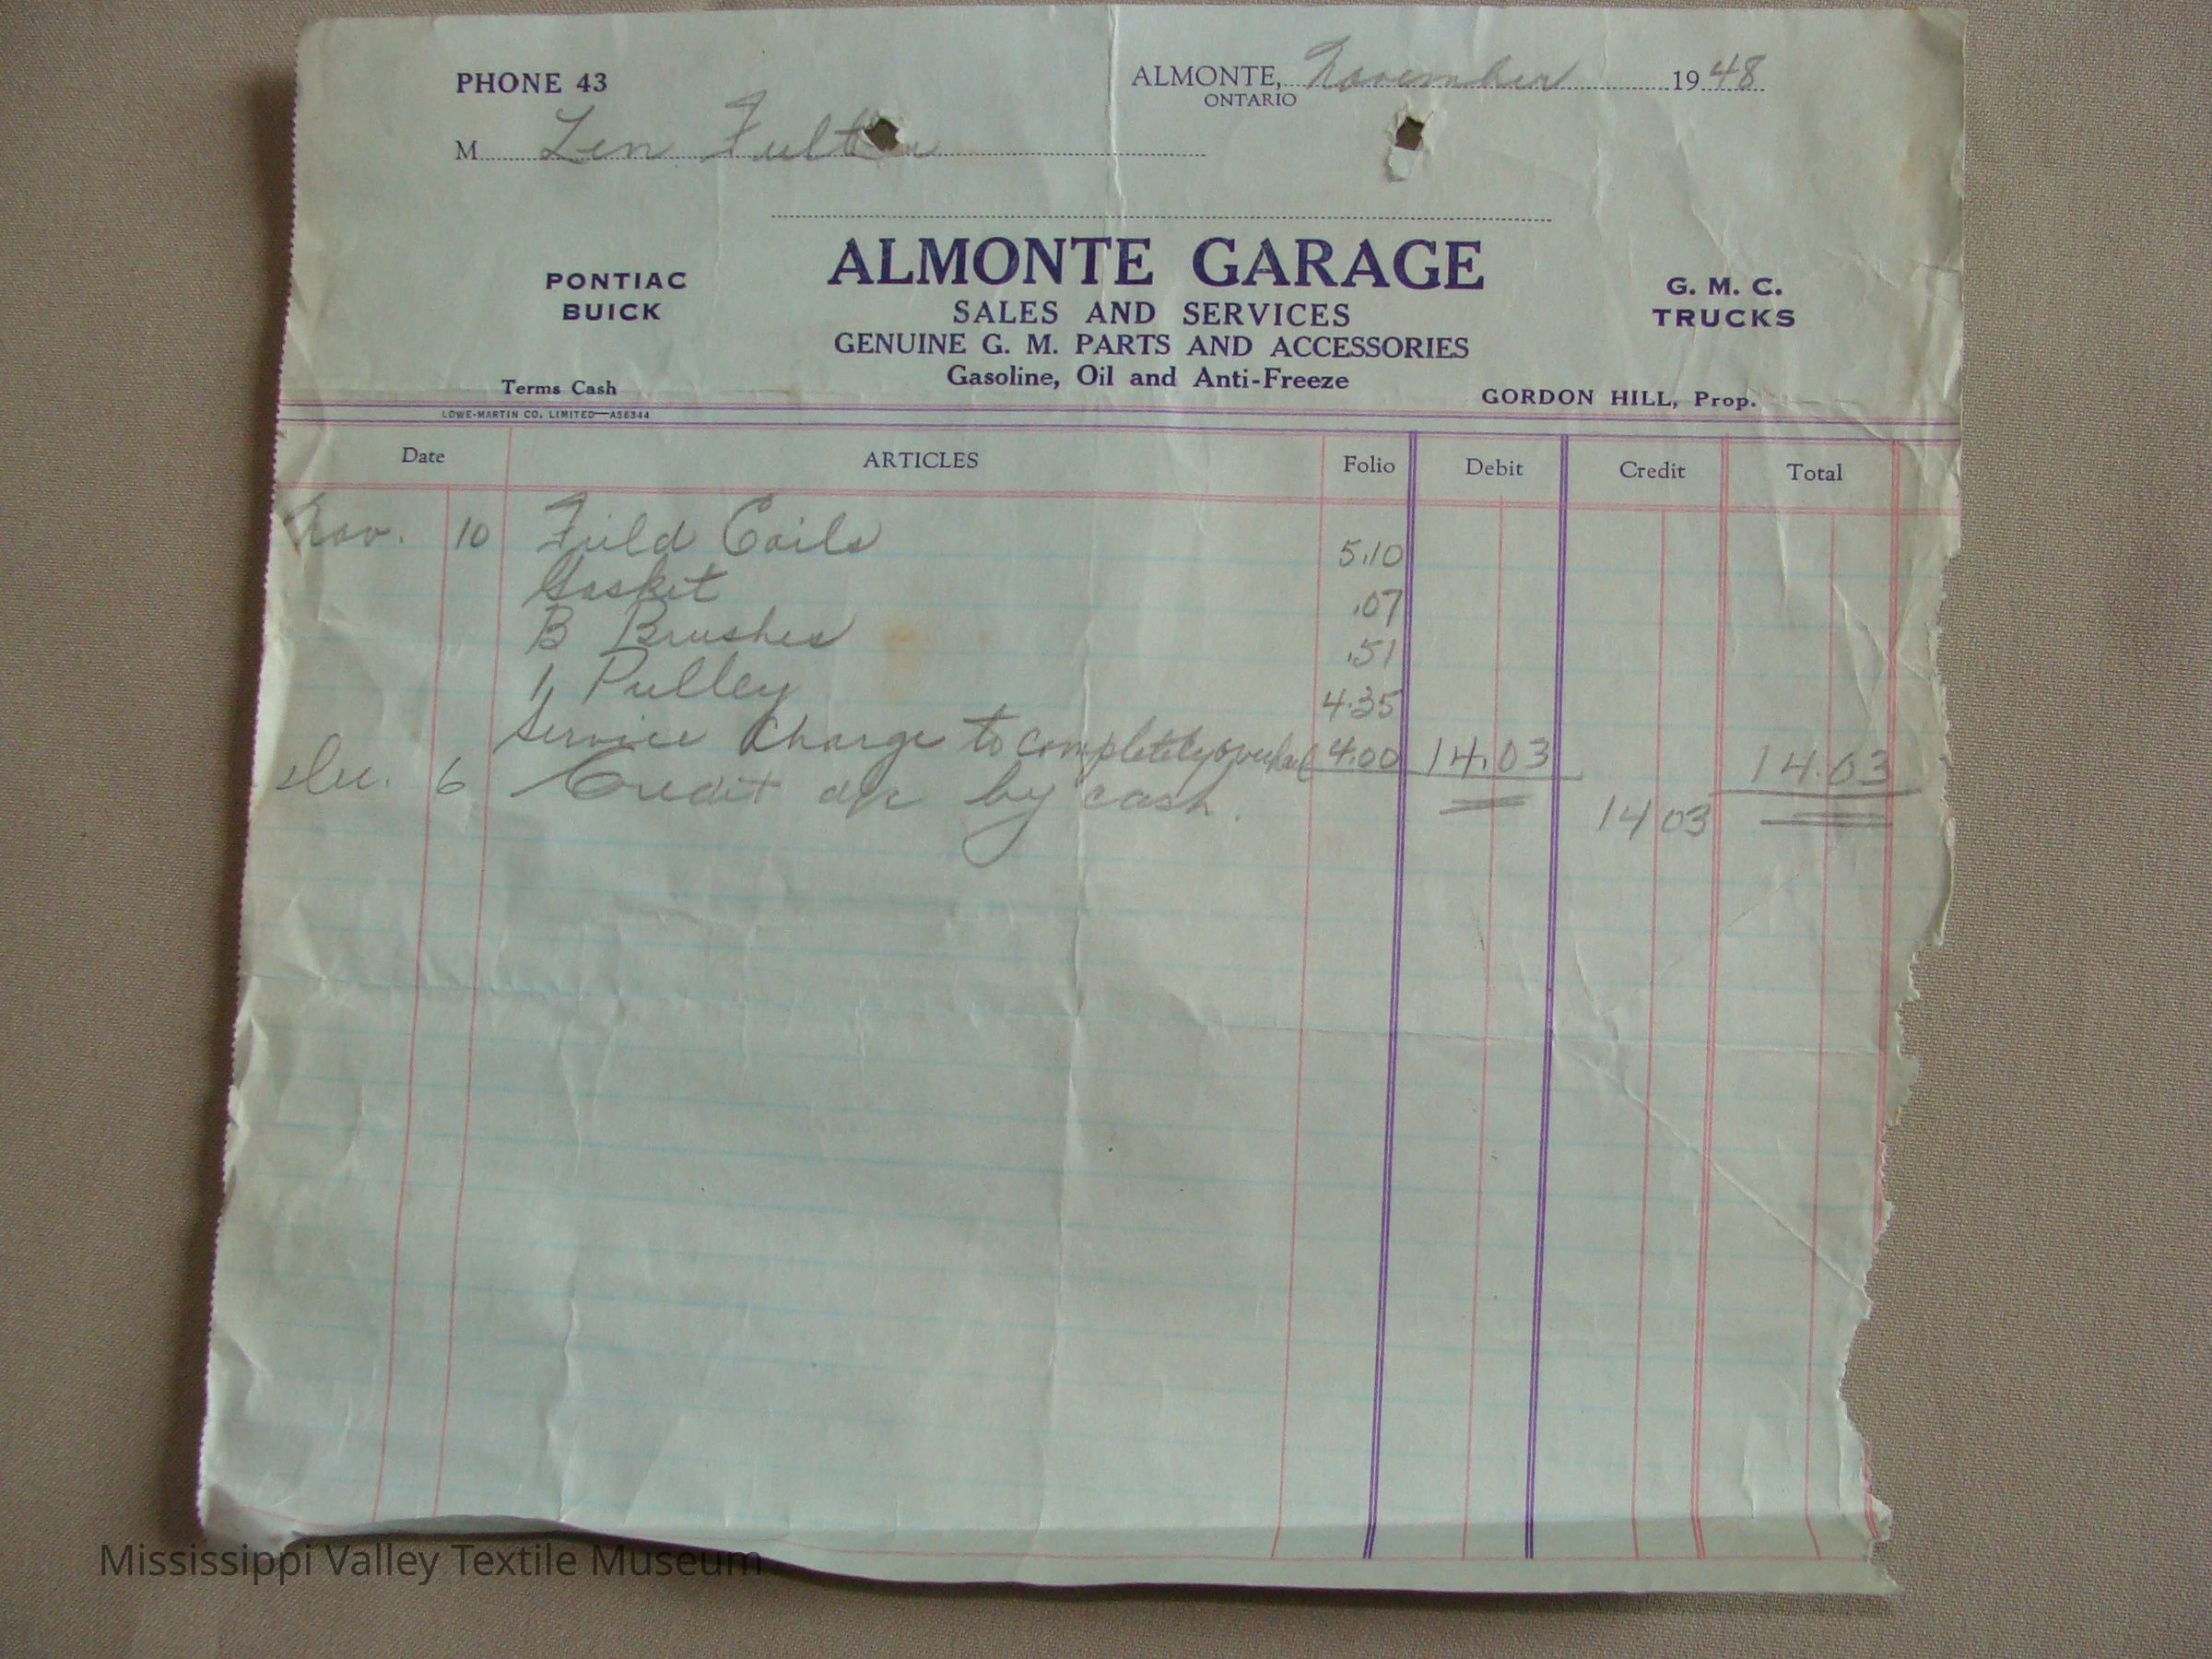 PHONE 43
ALMONTE, November 1948
ONTARIO
M Len Fulton
ALMONTE GARAGE
PONTIAC
BUICK
SALES AND SERVICES
G. M. C.
TRUCKS
GENUINE G. M. PARTS AND ACCESSORIES
Gasoline, Oil and Anti-Freeze
Terms Cash
GORDON HILL, Prop.
LOWE-MARTIN CO. LIMITED—A56344
Date ARTICLES Folio Debit Credit Total
Nov. 10 Field Coils 5.10
Gasket .07
B Brushes .51
1 Pulley 4.35
Service Charge to completely overhaul 4.00 14.03 14.03
Dec. 6 Credit a/c by cash. 14 03
Mississippi Valley Textile Museum